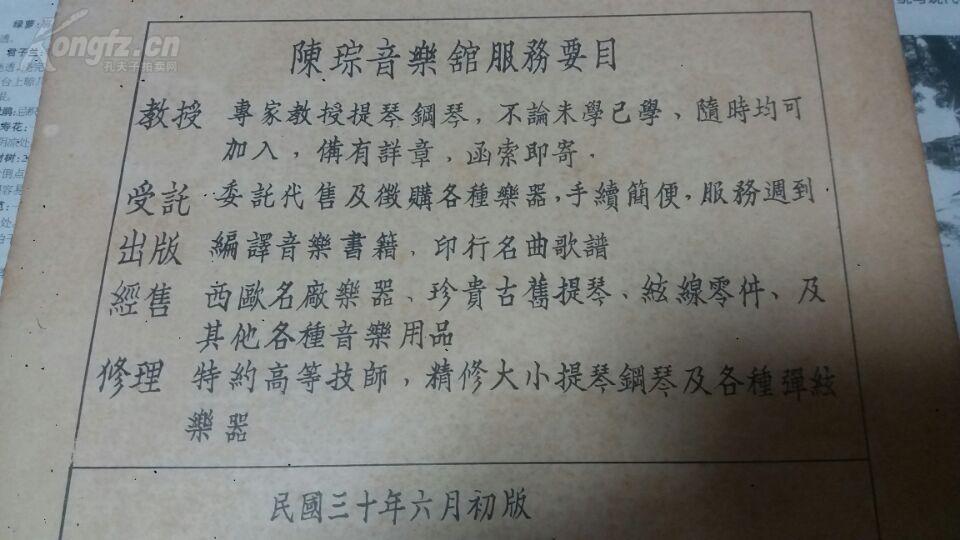 Kongfz.cn
孔夫子拍卖网
陳琮音樂舘服務要目
教授 專家教授提琴鋼琴，不論未學已學、隨時均可
加入，備有詳章，函索即寄．
受託 委託代售及徵購各種樂器，手續簡便，服務週到
出版 編譯音樂書籍．印行名曲歌譜
經售 西歐名廠樂器、珍貴古舊提琴、絃線零件、及
其他各種音樂用品
修理 特約高等技師，精修大小提琴鋼琴及各種彈絃
樂器
民國三十年六月初版